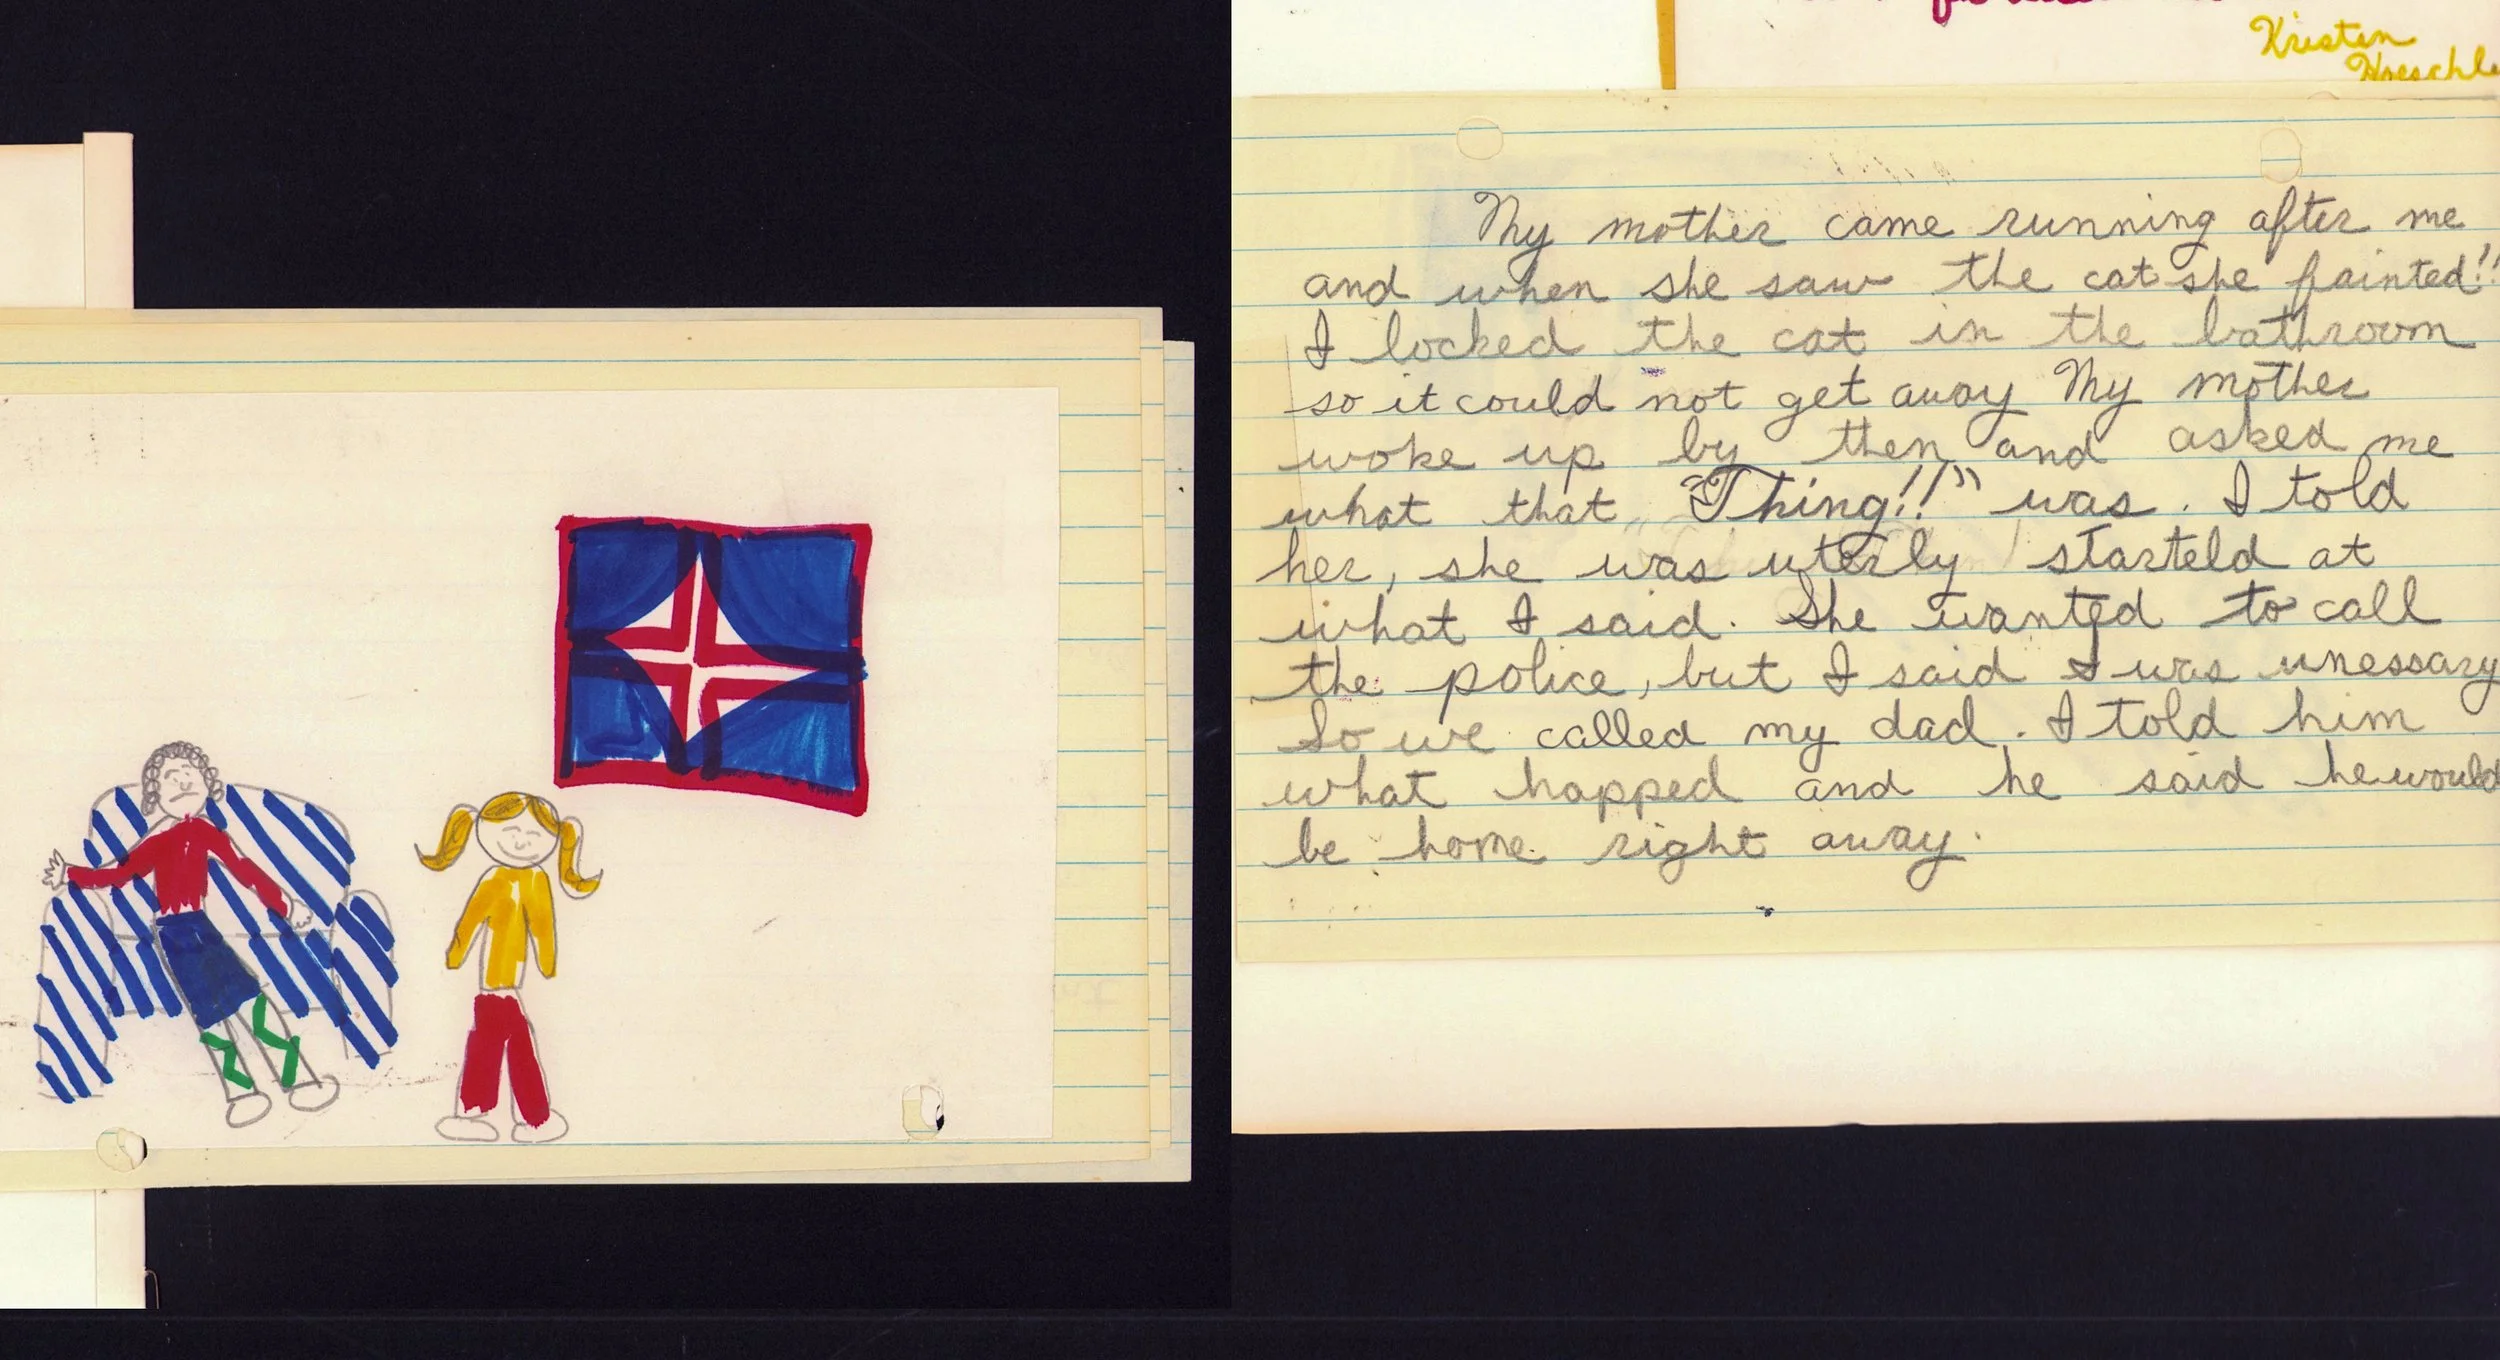 Kristen
My mother came running after me
and when she saw the cat she fainted!!
I locked the cat in the bathroom
so it could not get away My mother
woke up by then and asked me
what that "Thing!!" was. I told
her, she was uterly starteld at
what I said. She wanted to call
the police, but I said I was unessary
So we called my dad. I told him
what happed and he said he would
be home right away.